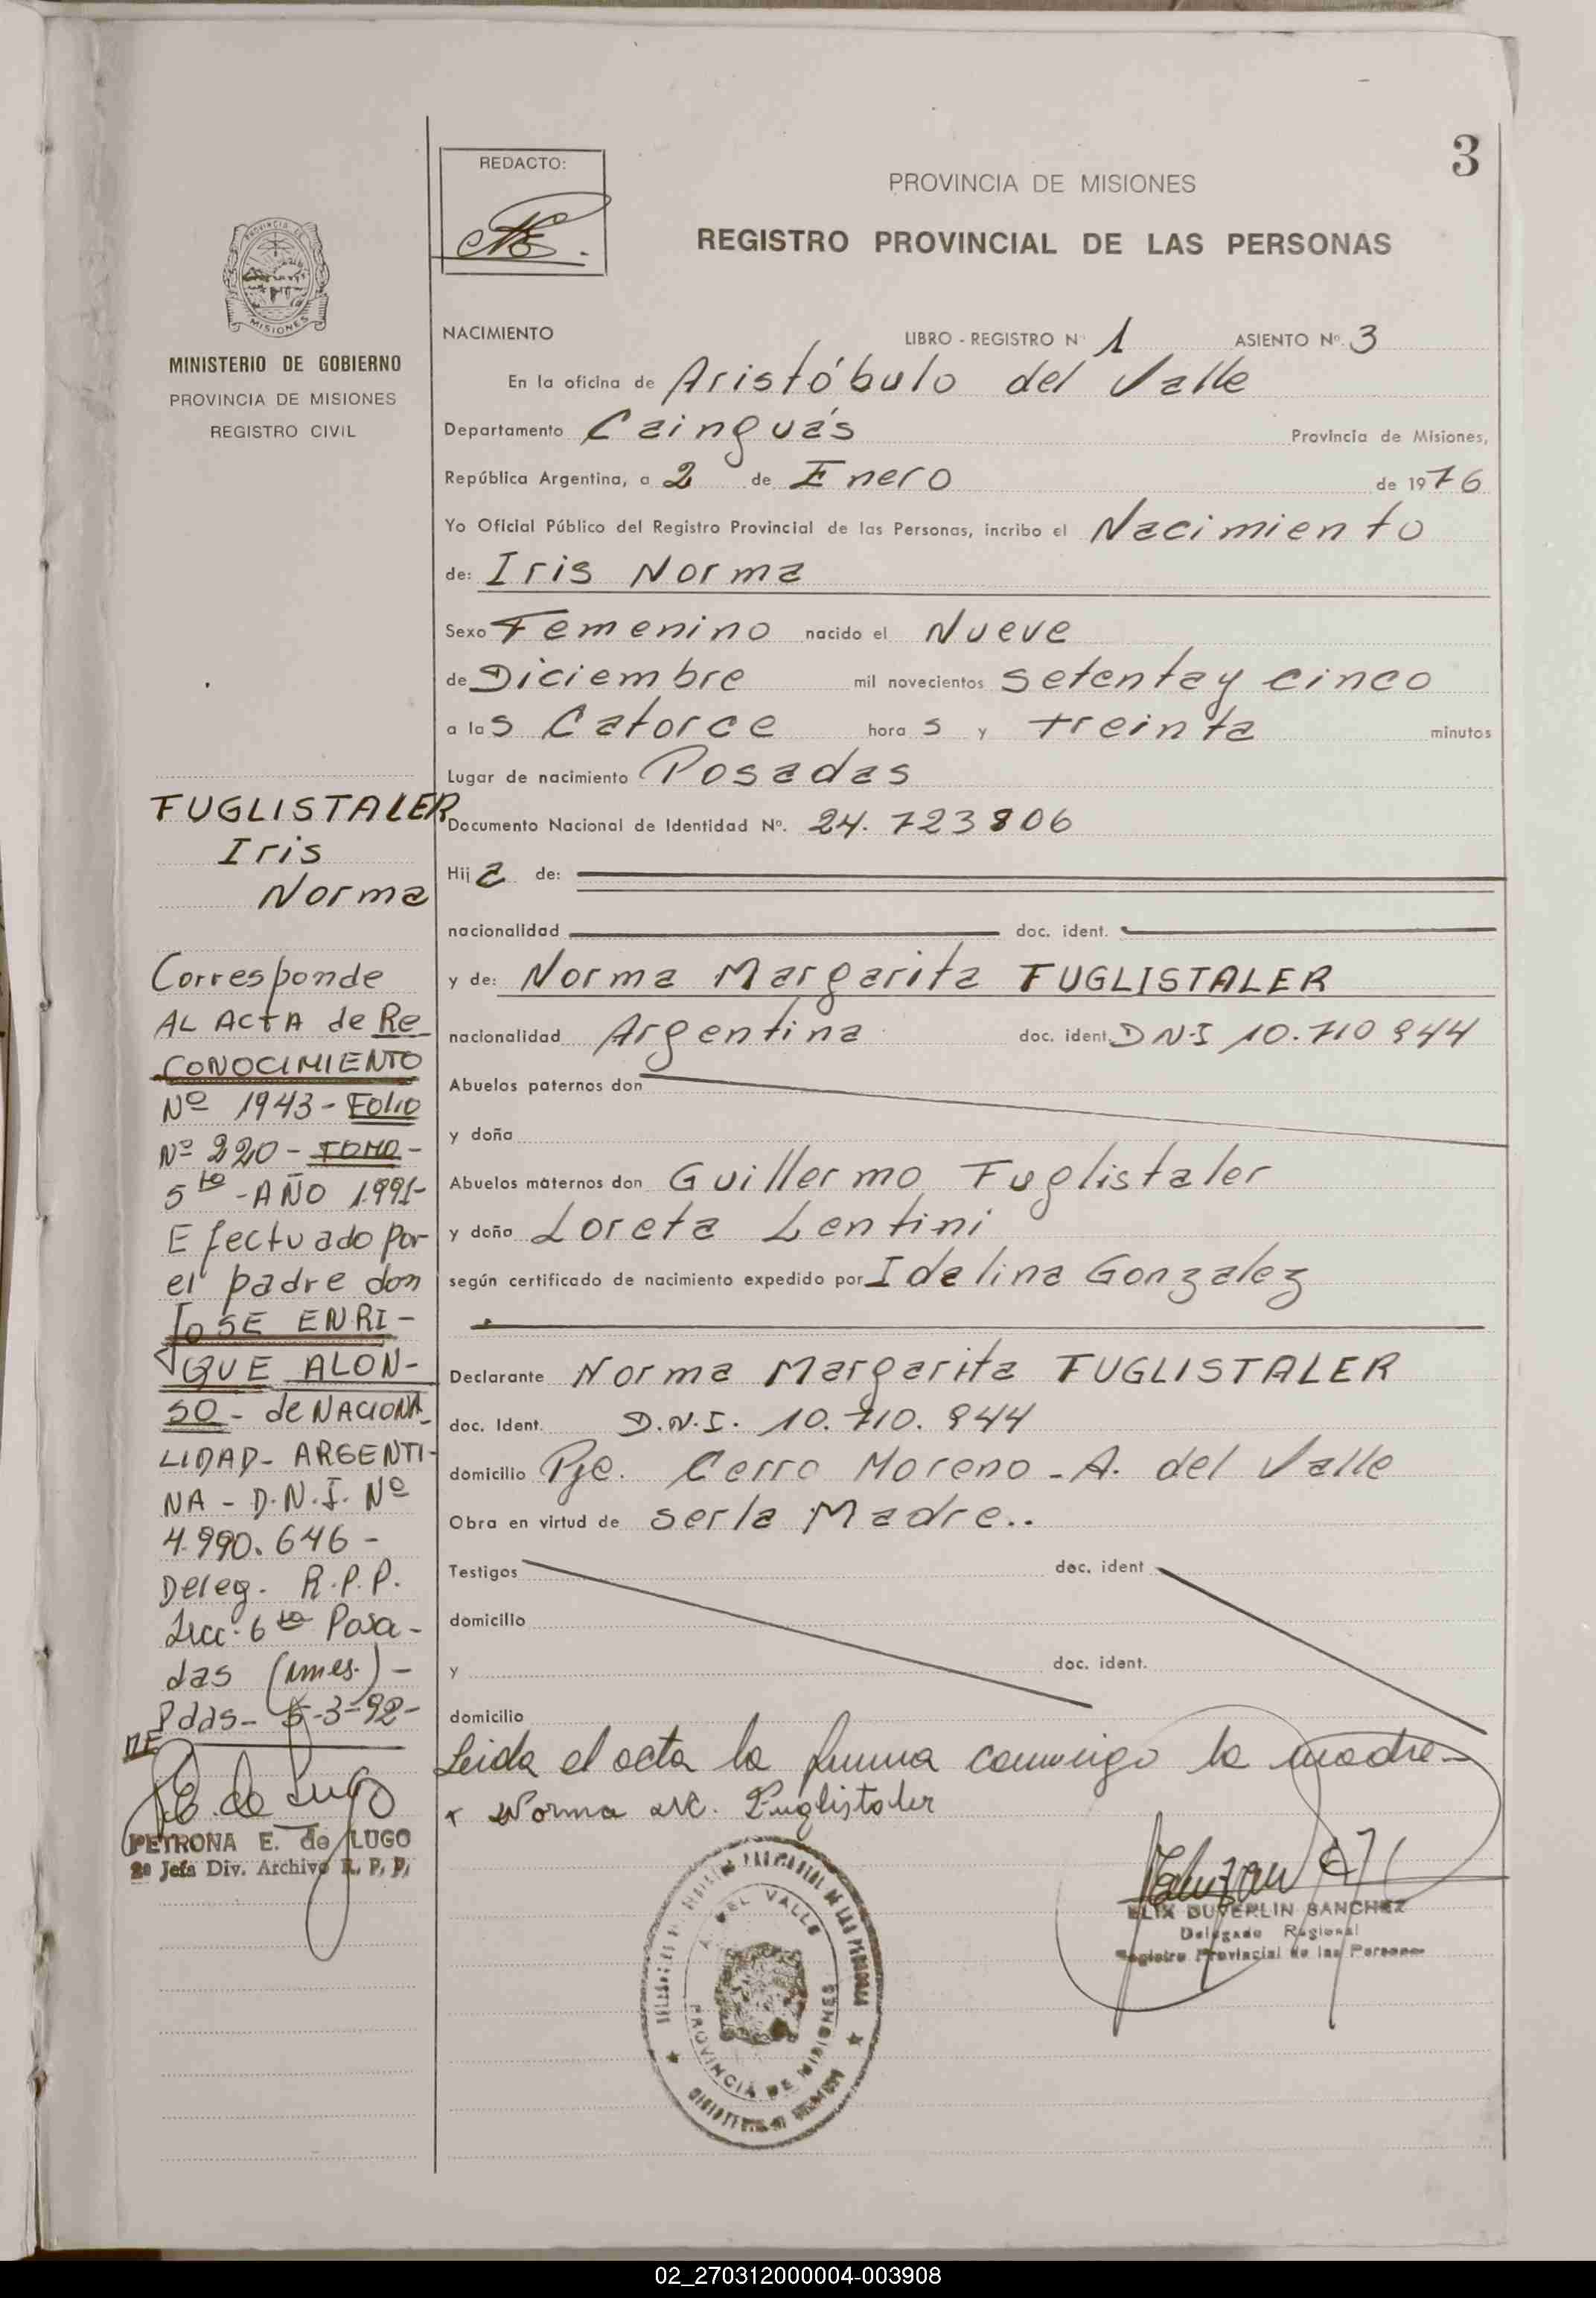 3
REDACTO:
PROVINCIA DE MISIONES
REGISTRO PROVINCIAL DE LAS PERSONAS
MISIONES
MINISTERIO DE GOBIERNO
PROVINCIA DE MISIONES
REGISTRO CIVIL
NACIMIENTO LIBRO - REGISTRO N° 1 ASIENTO Nº. 3
En la oficina de Aristóbulo del Valle
Departamento Cainguás Provincia de Misiones,
República Argentina, a 2 de Enero de 1976
Yo Oficial Público del Registro Provincial de las Personas, incribo el Nacimiento
de: Iris Norma
Sexo Femenino nacido el Nueve
de Diciembre mil novecientos setenta y cinco
a las Catorce horas y treinta minutos
Lugar de nacimiento Posadas
Documento Nacional de Identidad Nº. 24.723806
Hija de:
nacionalidad doc. ident.
y de: Norma Margarita FUGLISTALER
nacionalidad Argentina doc. ident. D.N.I 10.710 944
Abuelos paternos don
y doña
Abuelos maternos don Guillermo Fuglistaler
y doña Loreta Lentini
según certificado de nacimiento expedido por Idalina Gonzalez
Declarante Norma Margarita FUGLISTALER
doc. Ident. D.N.I. 10.710.944
domicilio Pje. Cerro Moreno - A. del Valle
Obra en virtud de ser la Madre..
Testigos doc. ident
domicilio
y doc. ident.
domicilio
Leida el acta la firma conmigo la madre-
x Norma M. Fuglistaler
FUGLISTALER
Iris
Norma
Corresponde
AL ACTA de Re
CONOCIMIENTO
Nº 1943 - Folio
Nº 220 - TOMO -
5to - AÑO 1991-
Efectuado por
el padre don
JOSE ENRI-
QUE ALON-
SO - de NACIONA-
LIDAD - ARGENTI-
NA - D.N.I. Nº
4.990.646 -
Deleg. R.P.P.
Secc. 6ta Posa-
das (Mnes.) -
Pdas - 5-3-92-
E. de Lugo
PETRONA E. de LUGO
2º Jefa Div. Archivo R. P. P.
A. DEL VALLE
PROVINCIA DE MISIONES
ELIX DUVERLIN SANCHEZ
Delegado Regional
Registro Provincial de las Personas
02_270312000004-003908